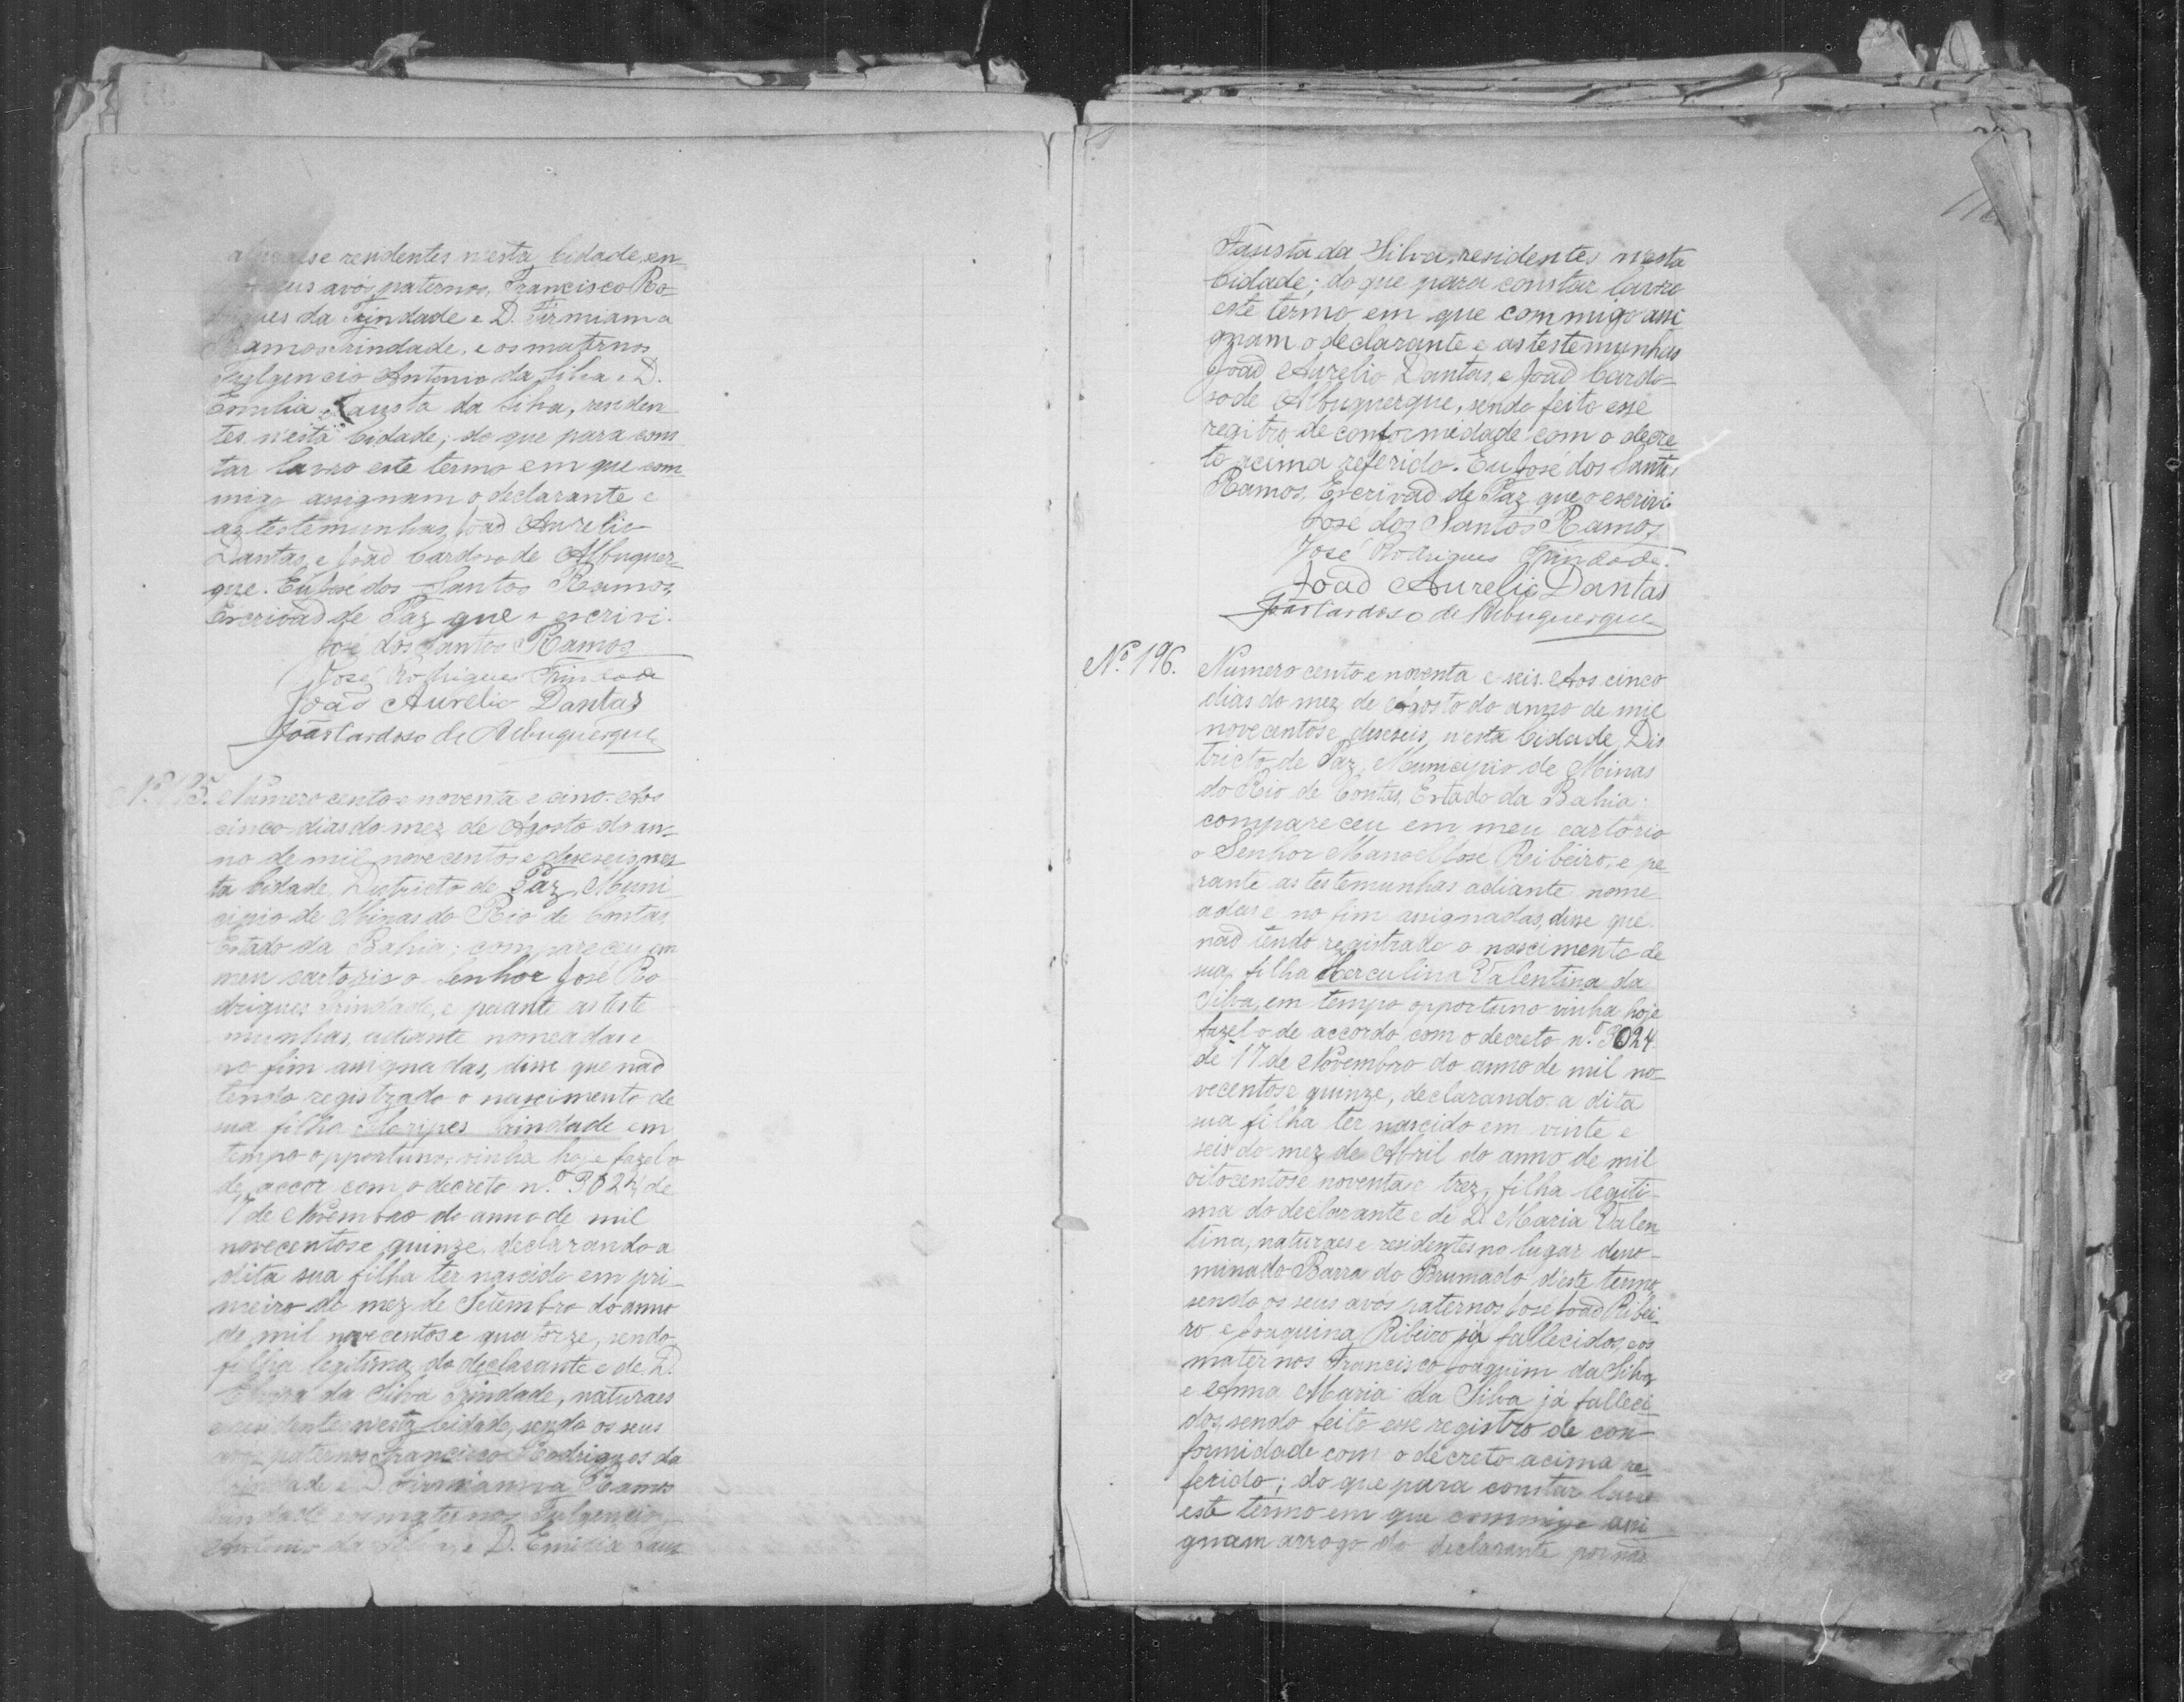 residentes n'esta Cidade, en-
seus avós paternos, Francisco Ro-
drigues da Trindade e D. Firmiana
Ramos Trindade, e os maternos
Fulgencio Antonio da Silva e D.
Emilia Fausta da Silva, residen
tes n'esta Cidade; do que para cons
tar lavro este termo em que com
migo assignam o declarante e
as testemunhas, Joaõ Aurelio
Dantas, e Joaõ Cardoso de Albuquer-
que. Eu José dos Santos Ramos,
Escrivaõ de Paz que o escrivi.
José dos Santos Ramos
José Rodrigues Trindade
Joaõ Aurelio Dantas
João Cardoso de Albuquerque
Numero cento e noventa e cinco. Aos
cinco dias do mez de Agosto do an-
no de mil novecentos e deseseis, nes
ta Cidade, Districto de Paz, Muni
cipio de Minas do Rio de Contas,
Estado da Bahia; compareceu em
meu cartorio o Senhor José Ro
drigues Trindade, e perante as teste
munhas, adiante nomeadas e
no fim assignadas, disse que naõ
tendo registrado o nascimento de
sua filha Floripes Trindade em
tempo opportuno, vinha hoje fazel-o
de accor com o decreto n.º 3024 de
17 de Novembro do anno de mil
novecentos e quinze, declarando a
dita sua filha ter nascido em pri-
meiro do mez de Setembro do anno
de mil novecentos e quatorze, sendo
filha legitima do declarante e de D.
da Silva Trindade, naturaes
e residentes n'esta Cidade, sendo os seus
avós paternos Francisco Rodrigues da
Trindade e D. Firmianna Ramos
Trindade e os maternos Fulgencio
Antonio da Silva, e D. Emilia Faus
Fausta da Silva, residentes n'esta
Cidade; do que para constar lavro
este termo em que commigo assi
gnam o declarante e as testemunhas
Joaõ Aurelio Dantas, e Joaõ Cardo-
so de Albuquerque, sendo feito esse
registro de conformidade com o decre
to acima referido. Eu José dos Santos
Ramos, Escrivaõ de Paz que o escrivi.
José dos Santos Ramos
José Rodrigues Trindade.
Joaõ Aurelio Dantas
João Cardoso de Albuquerque
Nº 196.
Numero cento e noventa e seis. Aos cinco
dias do mez de Agosto do anno de mil
novecentos e deseseis, n'esta Cidade, Dis
tricto de Paz, Municipio de Minas
do Rio de Contas, Estado da Bahia:
compareceu em meu cartorio
o Senhor Manoel José Ribeiro, e pe-
rante as testemunhas adiante nome
adas e no fim assignadas, disse que
naõ tendo registrado o nascimento de
sua filha Herculina Valentina da
Silva, em tempo opportuno vinha hoje
fazel-o de accordo com o decreto n.º 3024
de 17 de Novembro do anno de mil no-
vecentos e quinze, declarando a dita
sua filha ter nascido em vinte e
seis do mez de Abril do anno de mil
oitocentos e noventa e trez, filha legiti-
ma do declarante e de D. Maria Valen
tina, naturaes e residentes no lugar deno-
minado Barra do Brumado d'este termo,
sendo os seus avós paternos José Joaõ Ribei-
ro e Joaquina Ribeiro já fallecidos, e os
maternos Francisco Joaquim da Silva
e Anna Maria da Silva já falleci
dos, sendo feito esse registro de con-
formidade com o decreto acima re-
ferido; do que para constar lavro
este termo em que commigo assi
gnam arrogo do declarante por naõ